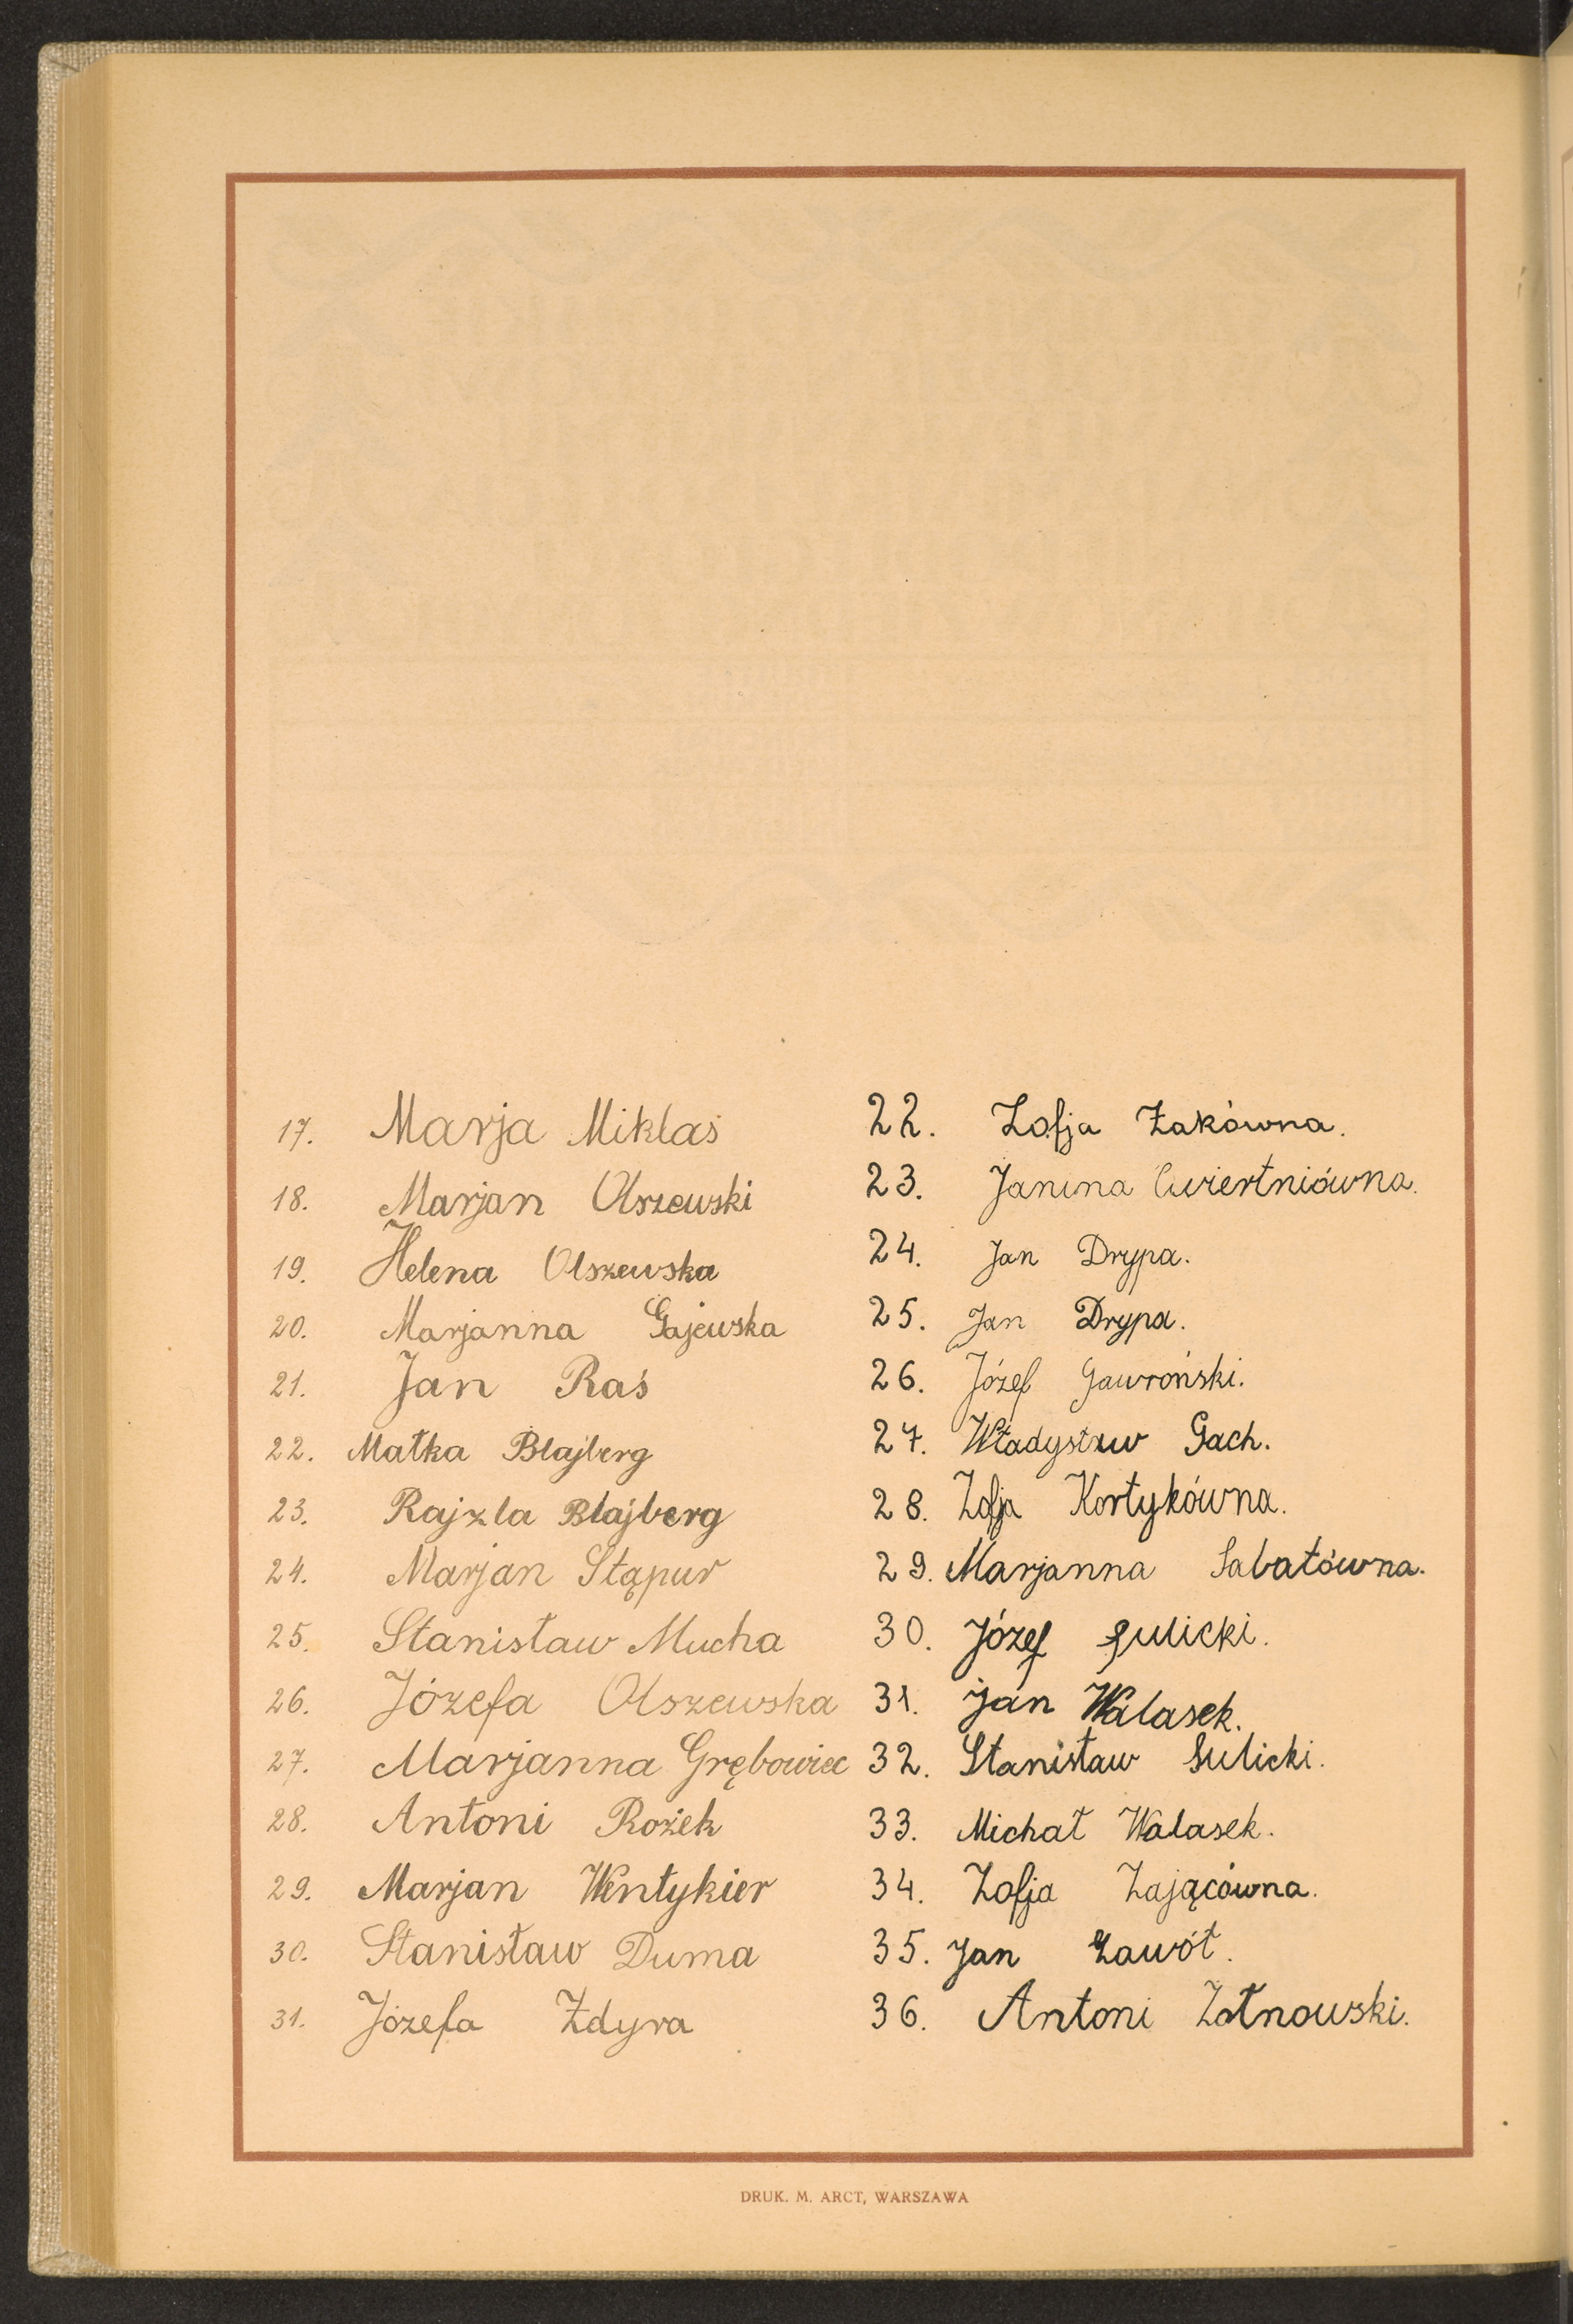 17. Marja Miklas
18. Marjan Olszewski
19. Helena Olszewska
20. Marjanna Gajewska
21. Jan Raś
22. Małka Blajberg
23. Rajzla Blajberg
24. Marjan Stąpur
25. Stanisław Mucha
26. Józefa Olszewska
27. Marjanna Grębowiec
28. Antoni Rożek
29. Marjan Wentykier
30. Stanisław Duma
31. Józefa Zdyra
22. Zofja Żakówna.
23. Janina Ćwiertniówna.
24. Jan Drypa.
25. Jan Drypa.
26. Józef Gawroński.
27. Władysław Gach.
28. Zofja Kortykówna.
29. Marjanna Sabatówna.
30. Józef Sulicki.
31. Jan Walasek.
32. Stanisław Sulicki.
33. Michał Walasek.
34. Zofja Zającówna.
35. Jan Zawół.
36. Antoni Żołnowski.
DRUK. M. ARCT, WARSZAWA